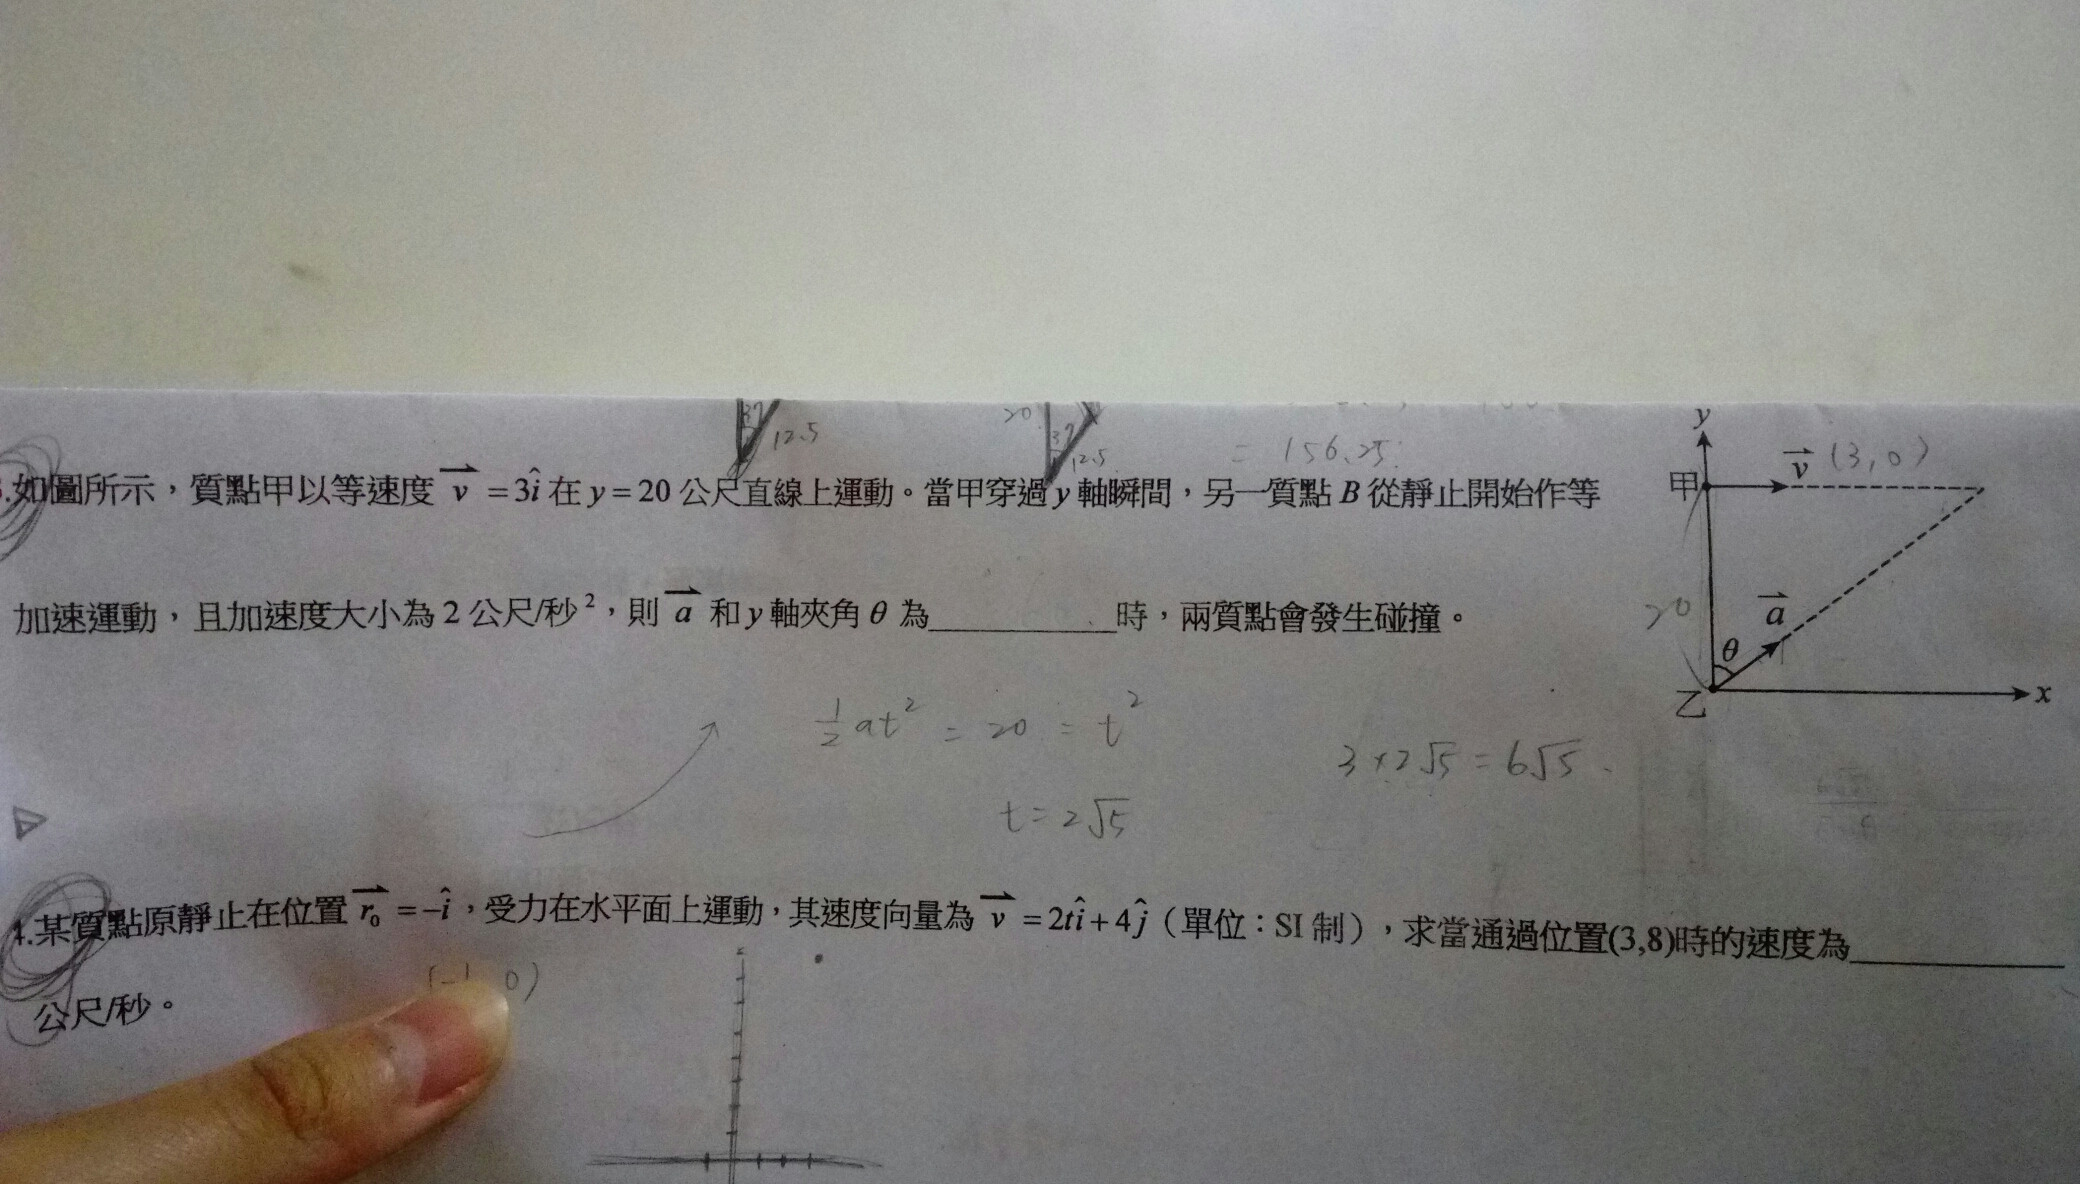 37
12.5
20
37
12.5
= 156.25
.如圖所示，質點甲以等速度 v = 3î 在 y = 20 公尺直線上運動。當甲穿過 y 軸瞬間，另一質點 B 從靜止開始作等
加速運動，且加速度大小為 2 公尺/秒²，則 a 和 y 軸夾角 θ 為________時，兩質點會發生碰撞。
y
v (3,0)
甲
20
a
θ
乙
x
½at² = 20 = t²
t = 2√5
3×2√5 = 6√5
4.某質點原靜止在位置 r₀ = −î，受力在水平面上運動，其速度向量為 v = 2tî + 4ĵ（單位：SI 制），求當通過位置(3,8)時的速度為________
公尺/秒。